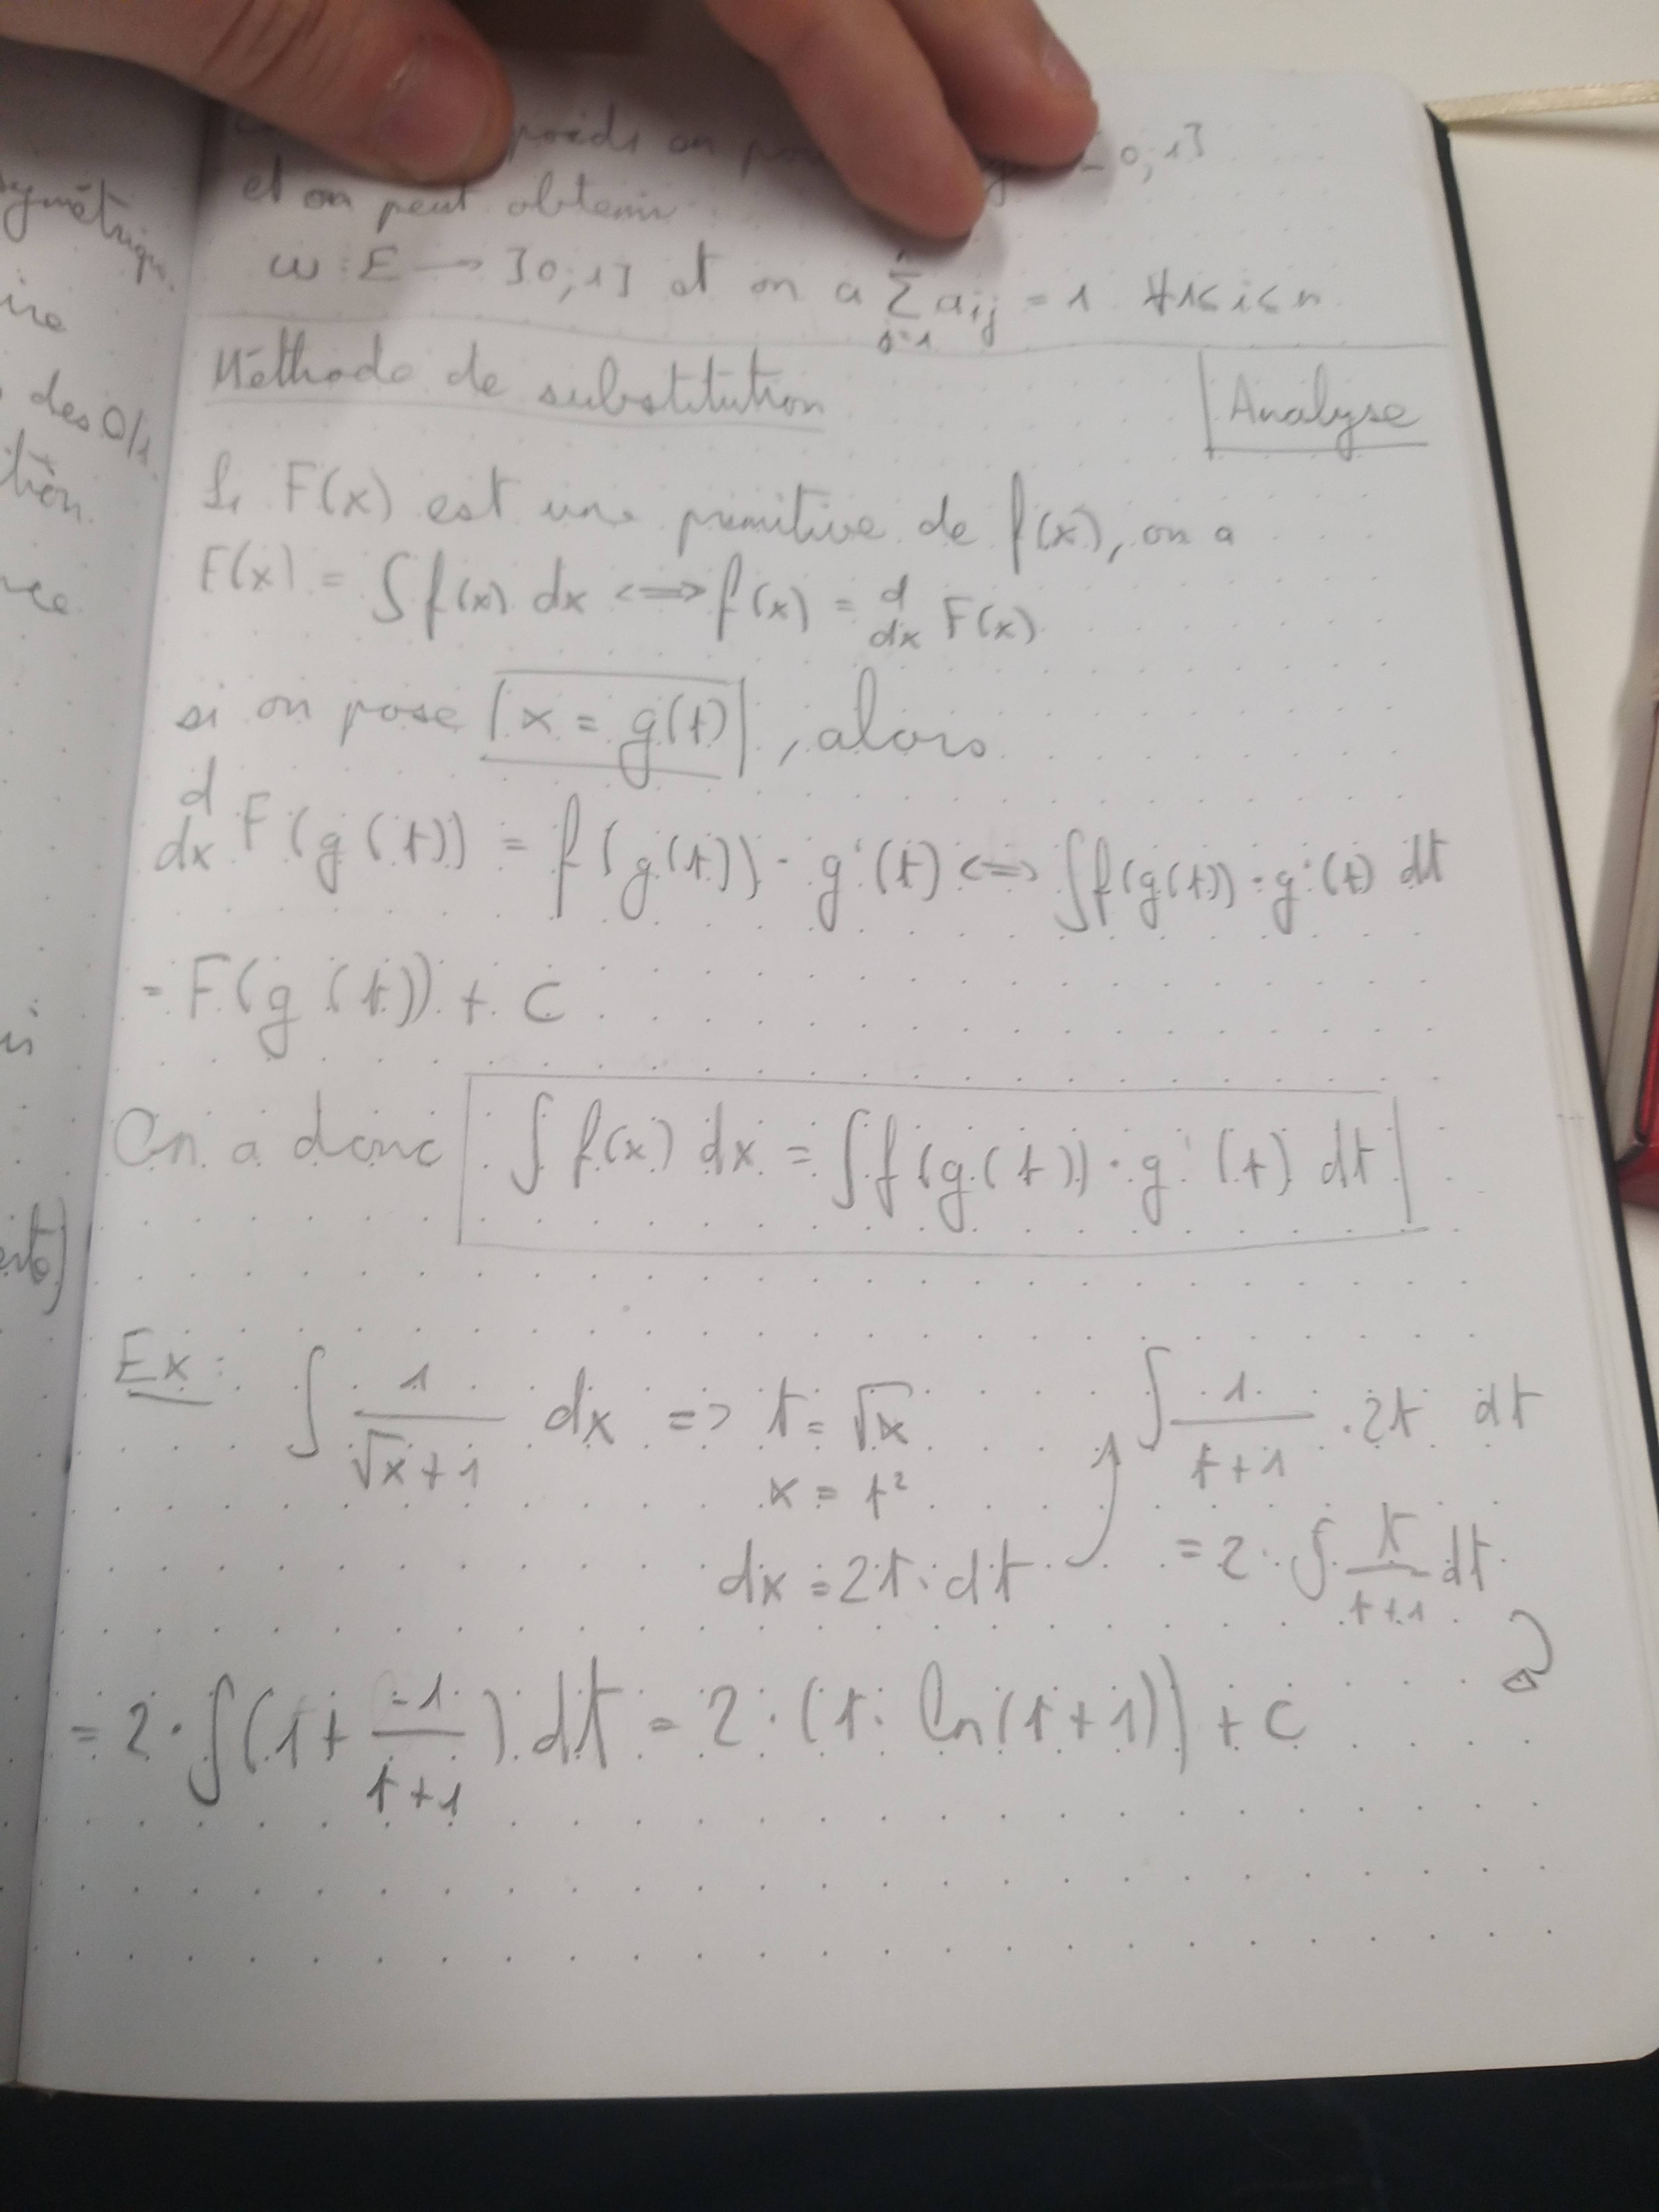 poids on
0;1]
et on peut obtenir
w : E → ]0;1] et on a ∑ aij = 1 ∀1≤i≤n
j=1
Méthode de substitution
Analyse
Si F(x) est une primitive de f(x), on a
F(x) = ∫f(x) dx <=> f(x) = d/dx F(x)
si on pose x = g(t), alors
d/dx F(g(t)) = f(g(t)) · g'(t) <=> ∫f(g(t)) · g'(t) dt
= F(g(t)) + C
On a donc ∫ f(x) dx = ∫f(g(t)) · g'(t) dt
Ex : ∫ 1/(√x+1) dx => t = √x ∫ 1/(t+1) · 2t dt
x = t²
dx = 2t · dt = 2 · ∫ t/(t+1) dt
= 2 · ∫(1 + -1/(t+1)) dt = 2 · (t · ln(t+1)) + C
symétrique.
ire
des 0/1
tion.